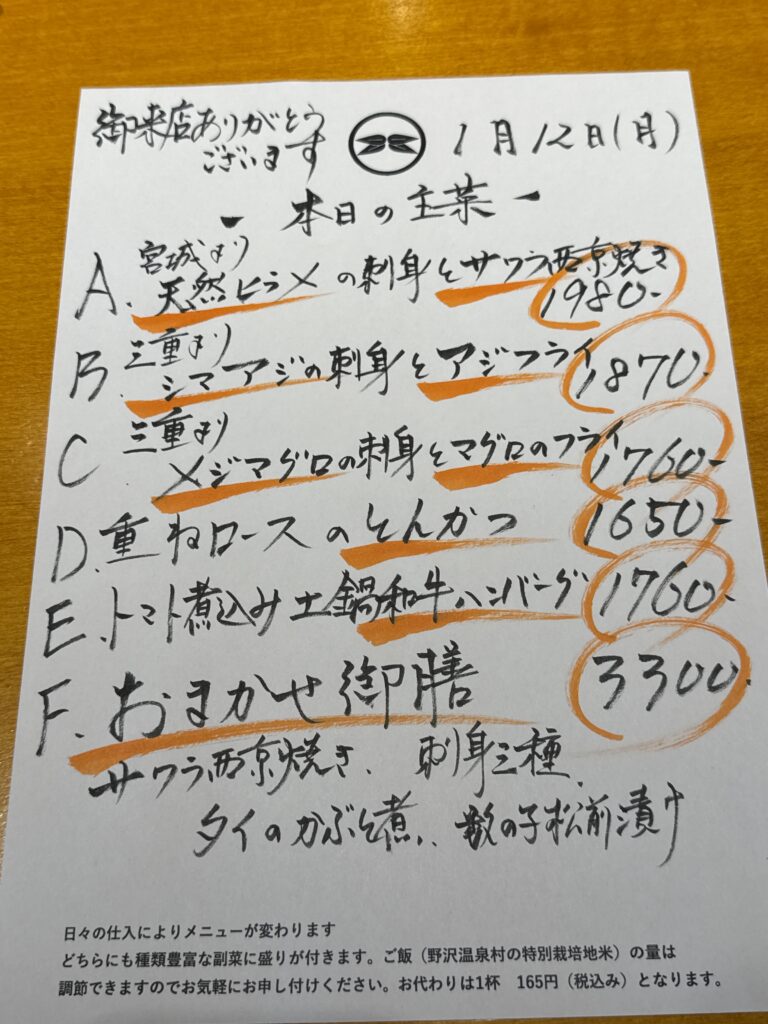 御来店ありがとう
ございます
1月12日(月)
- 本日の主菜 -
A. 宮城より
天然ヒラメの刺身とサワラ西京焼き
1980-
B. 三重より
シマアジの刺身とアジフライ 1870-
C 三重より
メジマグロの刺身とマグロのフライ 1760-
D. 重ねロースのとんかつ 1650-
E. トマト煮込み土鍋和牛ハンバーグ 1760-
F. おまかせ御膳 3300-
サワラ西京焼き、刺身三種、
タイのかぶと煮、数の子松前漬け
日々の仕入によりメニューが変わります
どちらにも種類豊富な副菜に盛りが付きます。ご飯(野沢温泉村の特別栽培地米)の量は
調節できますのでお気軽にお申し付けください。お代わりは1杯 165円(税込み)となります。